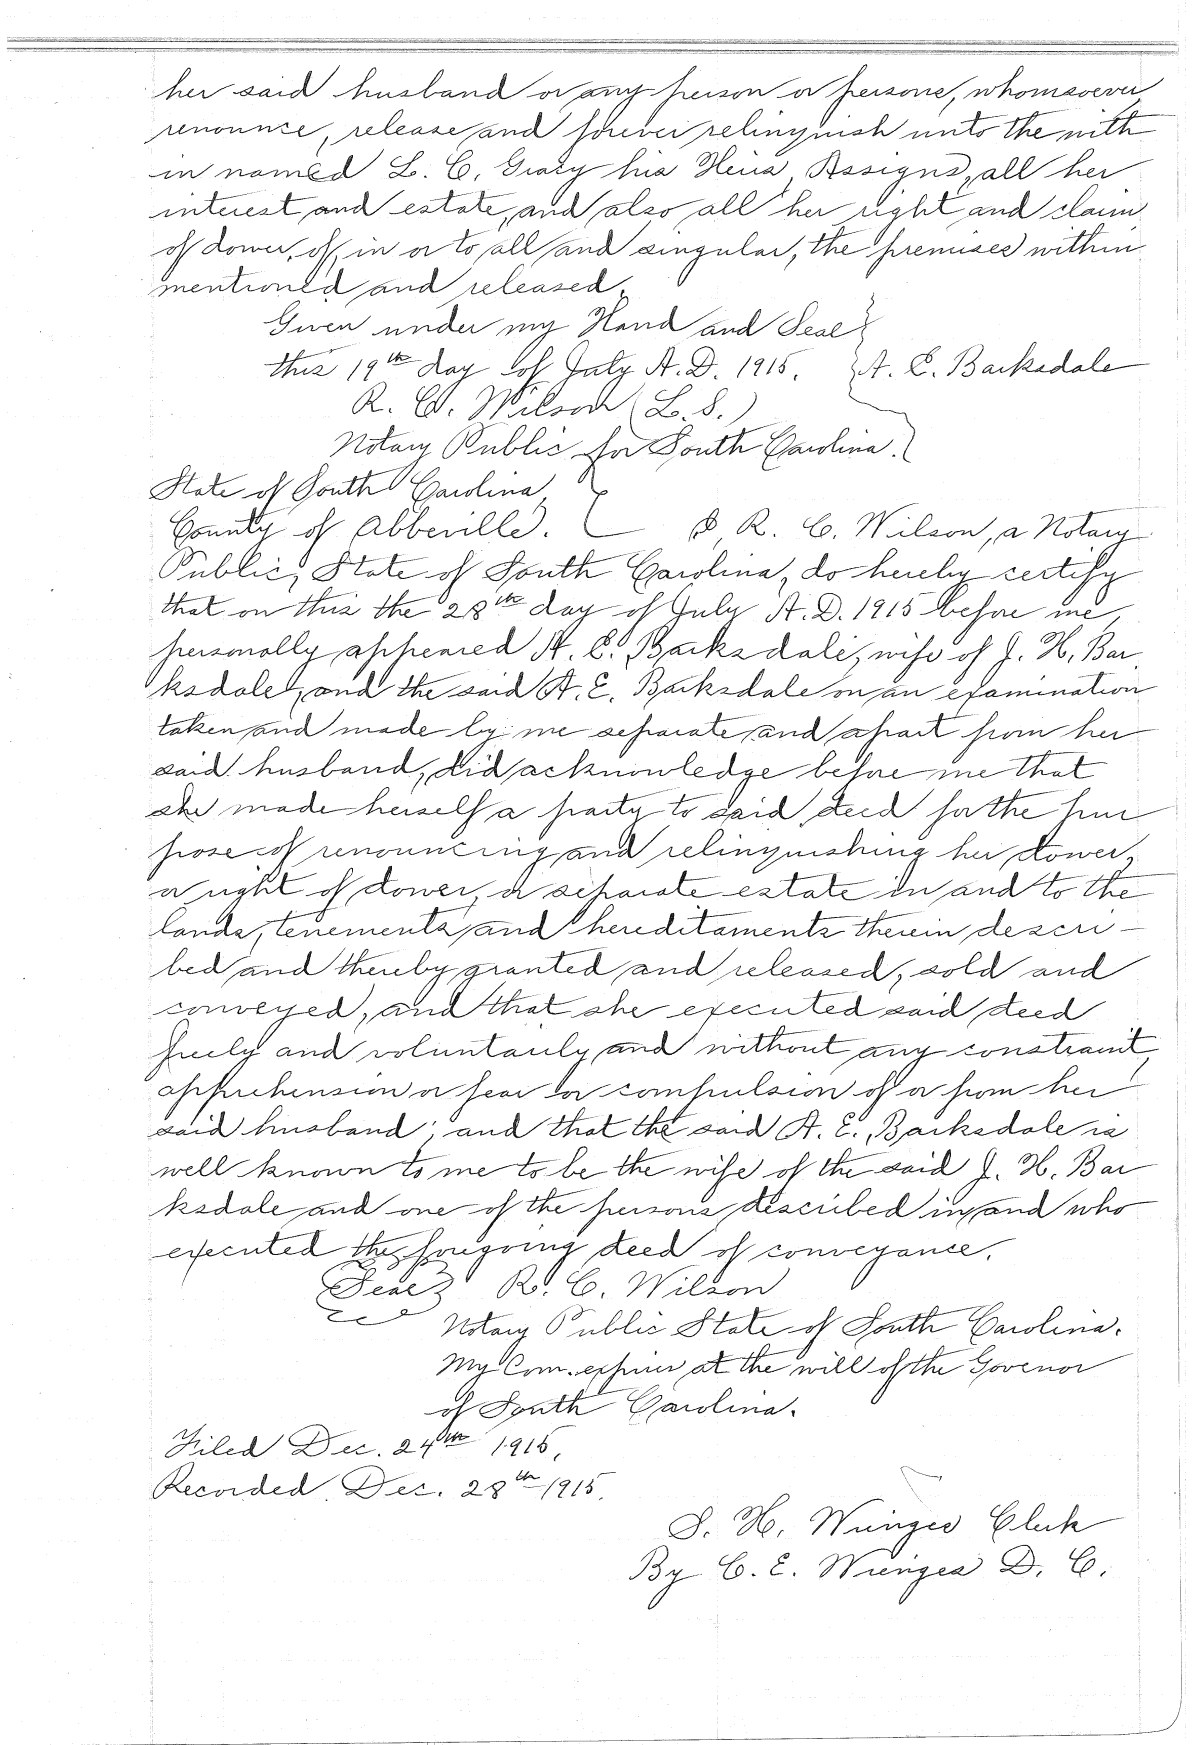 her said husband or any person or persons, whomsoever,
renounce, release, and forever relinquish unto the with
in named L. C. his Heirs, Assigns, all her
interest, and estate, and also all her right and claim
of dower, of, in or to all and singular, the premises within
mentioned and released.
Given under my Hand and Seal
this 19th day of July A. D. 1915. A. E. Barksdale
R. C. Wilson (L. S.)
Notary Public for South Carolina.
State of South Carolina,
County of Abbeville. I, R. C. Wilson, a Notary
Public, State of South Carolina, do hereby certify
that on this the 28th day of July A. D. 1915 before me,
personally appeared A. E. Barksdale, wife of J. H. Bar
ksdale, and the said A. E. Barksdale on an examination
taken and made by me separate, and apart from her
said husband, did acknowledge before me that
she made herself a party to said deed for the pur
pose of renouncing, and relinquishing her dower,
or right of dower, or separate estate in and to the
lands, tenements, and hereditaments therein descri-
bed and thereby granted and released, sold and
conveyed, and that she executed said deed
freely and voluntarily, and without any constraint,
apprehension or fear or compulsion of or from her
said husband; and that the said A. E. Barksdale is
well known to me to be the wife of the said J. H. Bar
ksdale and one of the persons described in, and who
executed the foregoing deed of conveyance.
Seal R. C. Wilson
Notary Public State of South Carolina.
My Com. expires at the will of the Govenor
of South Carolina.
Filed Dec. 24th 1915,
Recorded Dec. 28th 1915.
J. H. Clerk
By C. E. D. C.